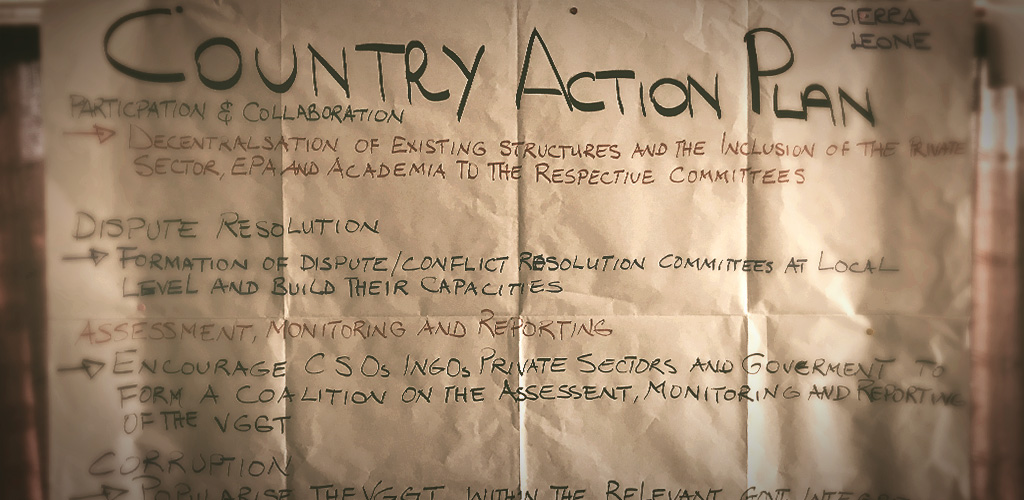 SIERRA
LEONE
COUNTRY ACTION PLAN
PARTICPATION & COLLABORATION
→ DECENTRALSATION OF EXISTING STRUCTURES AND THE INCLUSION OF THE PRIVATE
SECTOR, EPA AND ACADEMIA TO THE RESPECTIVE COMMITTEES
DISPUTE RESOLUTION
→ FORMATION OF DISPUTE/CONFLICT RESOLUTION COMMITTEES AT LOCAL
LEVEL AND BUILD THEIR CAPACITIES
ASSESSMENT, MONITORING AND REPORTING
→ ENCOURAGE CSOs INGOs PRIVATE SECTORS AND GOVERMENT TO
FORM A COALITION ON THE ASSESSENT, MONITORING AND REPORTING
OF THE VGGT
CORRUPTION
→ POPULARISE THE VGGT WITHIN THE RELEVANT GOVT